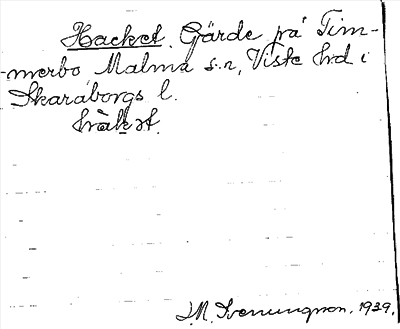 Hacket. Gärde på Tim-
-merbo Malma s:n, Viste hd i
Skaraborgs l.
J.M. Svenungson. 1939.